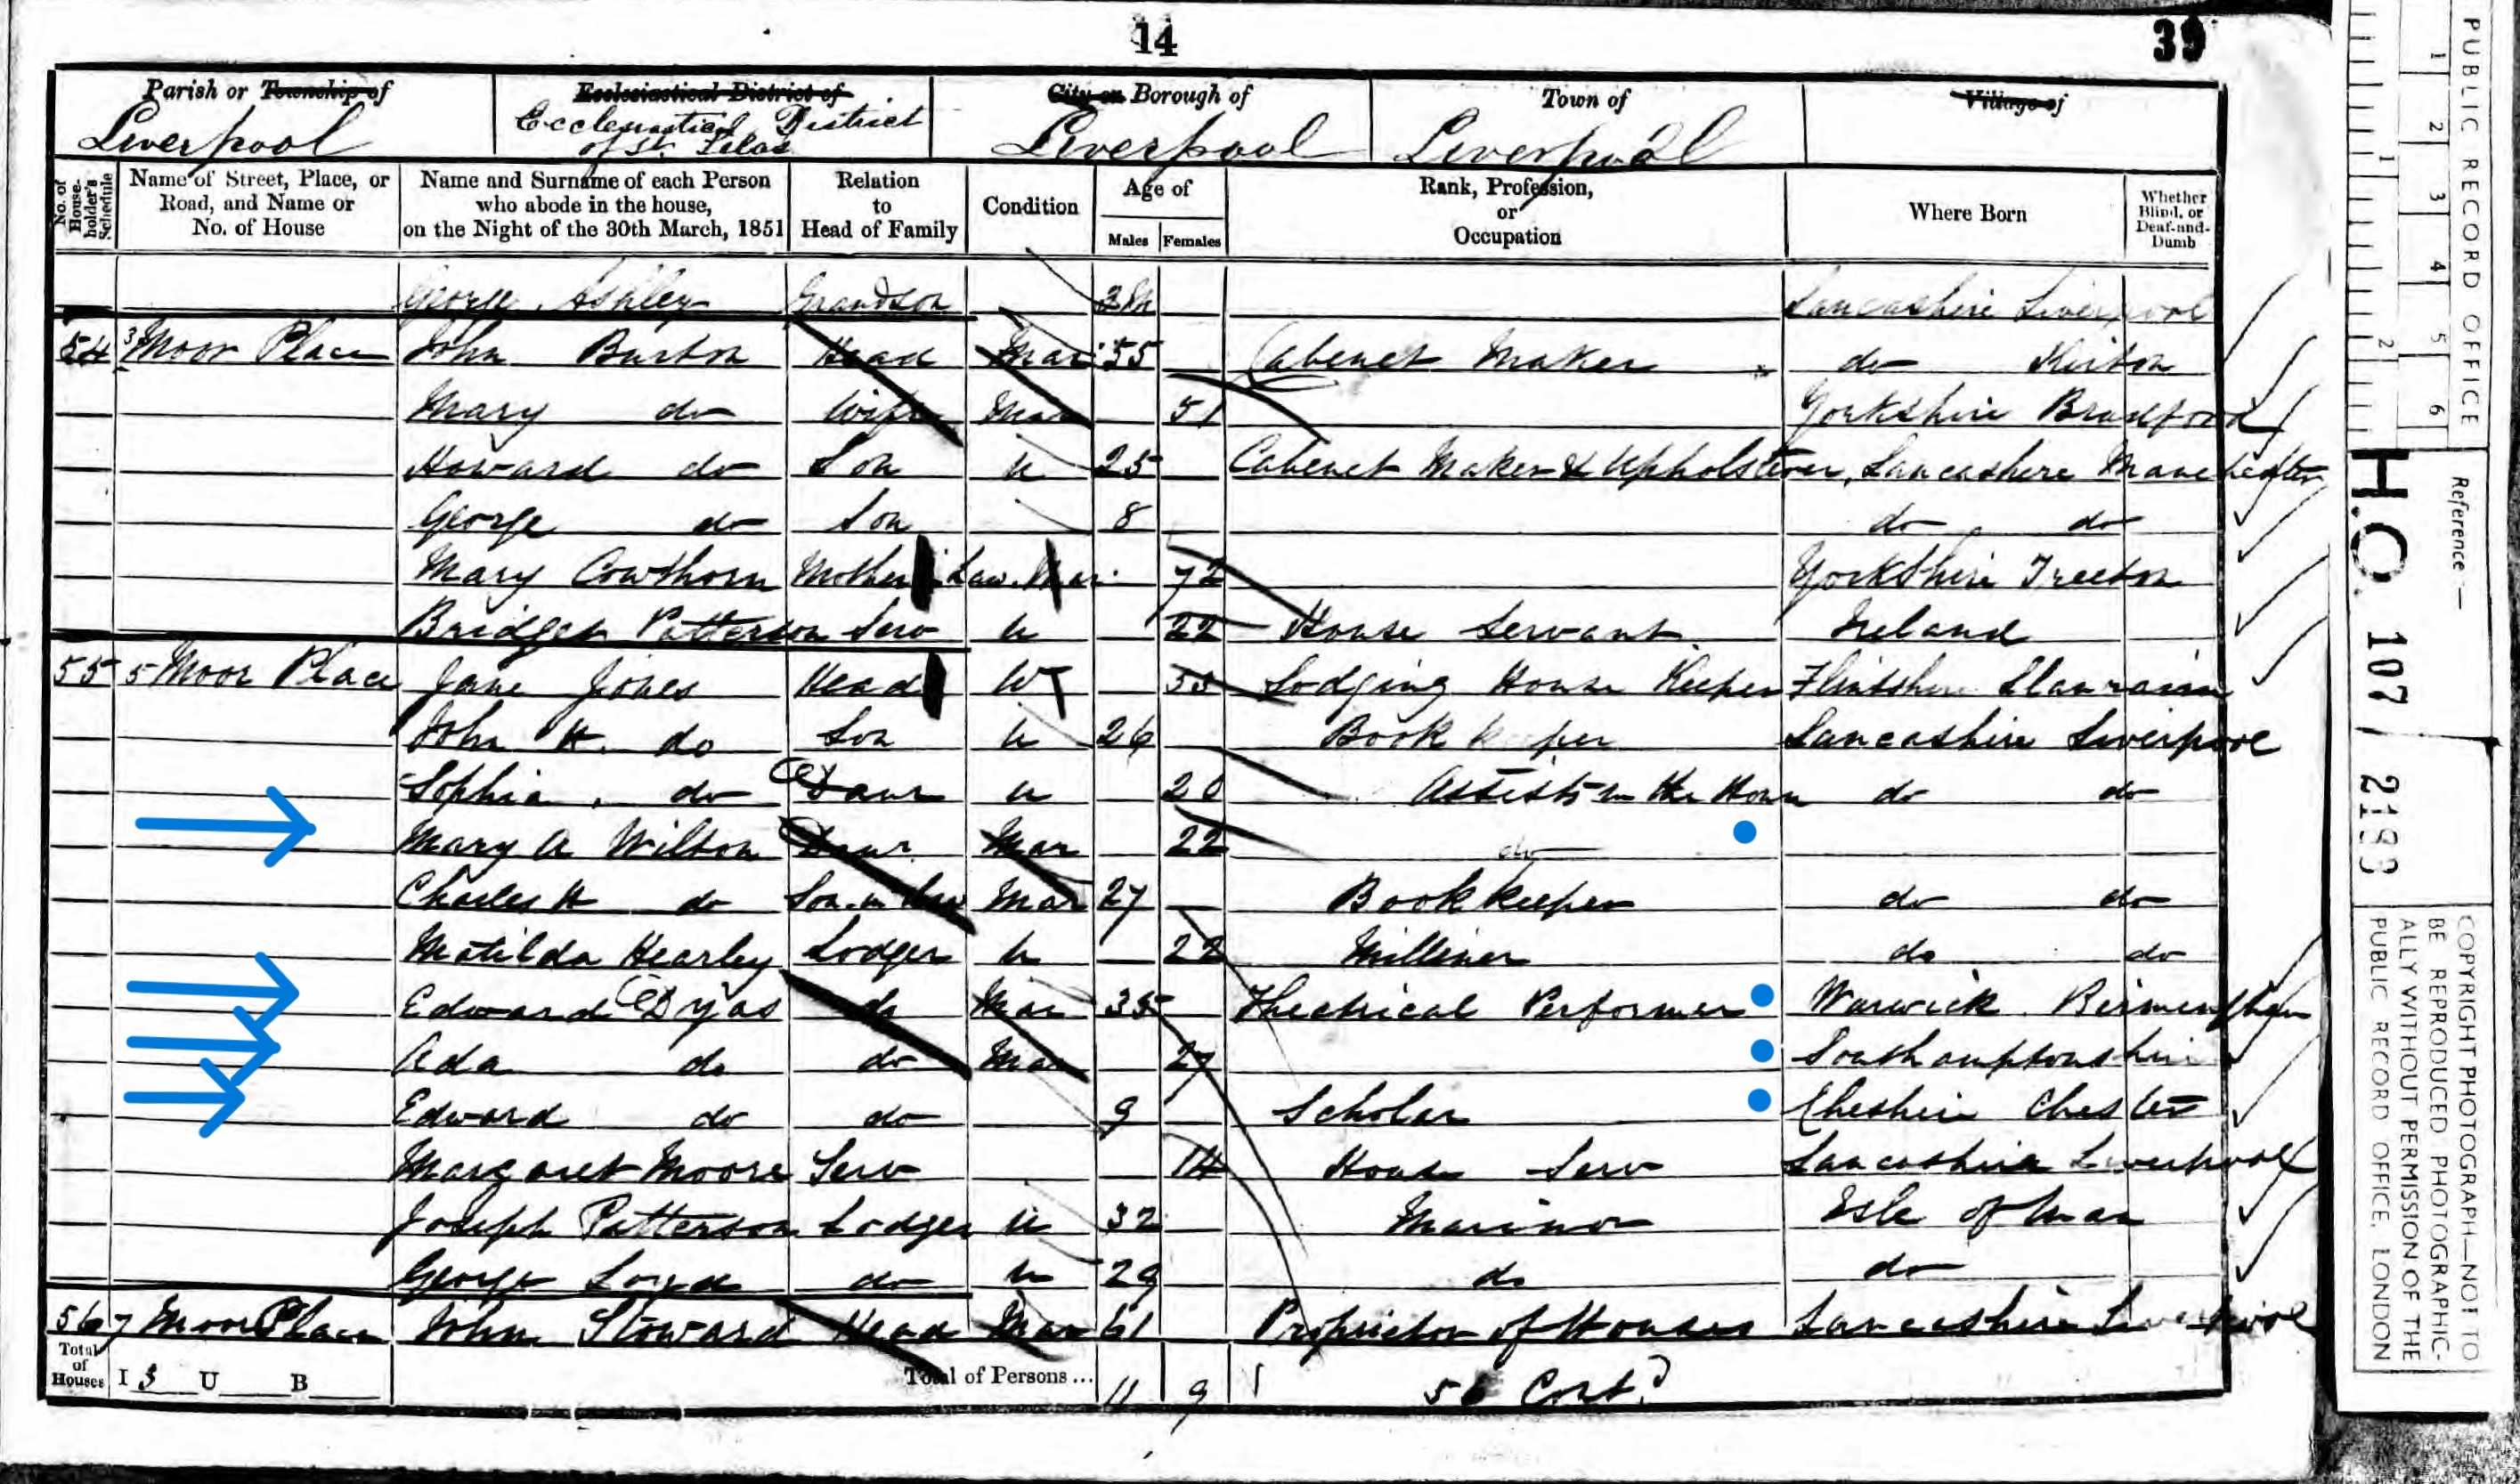 14
39
Parish or Township of
Ecclesiastical District of
City or Borough of
Town of
Village of
Liverpool
Ecclesiastical District
of St.
Liverpool
Liverpool
No. of House-holder's Schedule
Name of Street, Place, or Road, and Name or No. of House
Name and Surname of each Person who abode in the house, on the Night of the 30th March, 1851
Relation to Head of Family
Condition
Age of
Males Females
Rank, Profession, or Occupation
Where Born
Whether Blind, or Deaf-and-Dumb
George Ashley Grandson 3M Lancashire Liverpool
54 3 Moor Place John Burton Head Mar 55 Cabenet Maker do Kirton
Mary do Wife Mar 51 Yorkshire Bradford
Howard do Son u 25 Cabenet Maker & Upholsterer, Lancashire Manchester
George do Son 8 do do
Mary Cowthorn Mother Law. Mar. 72 Yorkshire Treeton
Bridget Patterson Serv u 22 House Servant Ireland
55 5 Moor Place Jane Jones Head W Lodging House Keeper Flintshire
John H. do Son u 26 Book keeper Lancashire Liverpool
Sophia do Daur u 20 Assists in the House do do
Mary A Wilton Daur. Mar 22 do
Charles H do Son-in-law Mar 27 Bookkeeper do do
Matilda Hearley Lodger u 22 Milliner do do
Edward Dyas do Mar 35 Thectrical Performer Warwick. Birmingham
Ada do do Mar 27 Southamptonshire
Edward do do 9 Scholar Cheshire Chester
Margaret Moore Serv 14 House Serv Lancashire Liverpool
Joseph Patterson Lodger u 32 Marinor Isle of Man
George Loyd do u 29 do do
56 7 Moor Place John Stoward Head Mar 61 Proprietor of Houses Lancashire Liverpool
Total of Houses I 3 U B
Total of Persons... 11 9
56 Cont.d
PUBLIC RECORD OFFICE
1 2 3 4 5 6
1 2
Reference:—
H.O. 107 / 2183
COPYRIGHT PHOTOGRAPH—NOT TO
BE REPRODUCED PHOTOGRAPHIC-
ALLY WITHOUT PERMISSION OF THE
PUBLIC RECORD OFFICE, LONDON